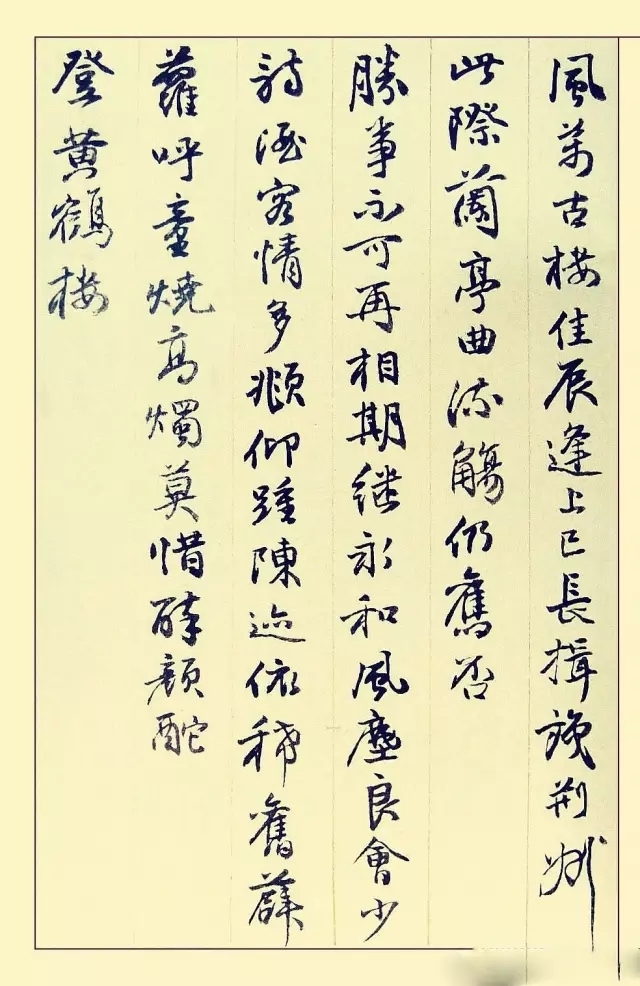 風萬古樓佳辰逢上巳長揖識荆州
此際蘭亭曲流觴仍舊否
勝事不可再相期继永和風塵良會少
詩酒客情多頫仰踵陳迹依稀舊薜
蘿呼童燒高燭莫惜醉顏酡
登黄鶴樓